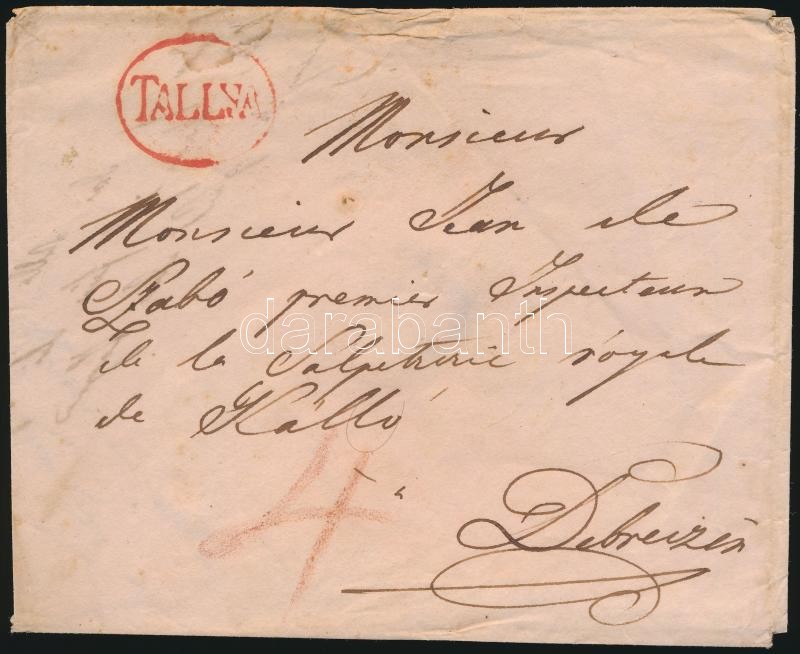 TALLYA
Monsieur
Monsieur Jean de
Szabó premier Inspecteur
de la Salpetrerie royale
de Kálló
darabanth
4
à
Debreczén